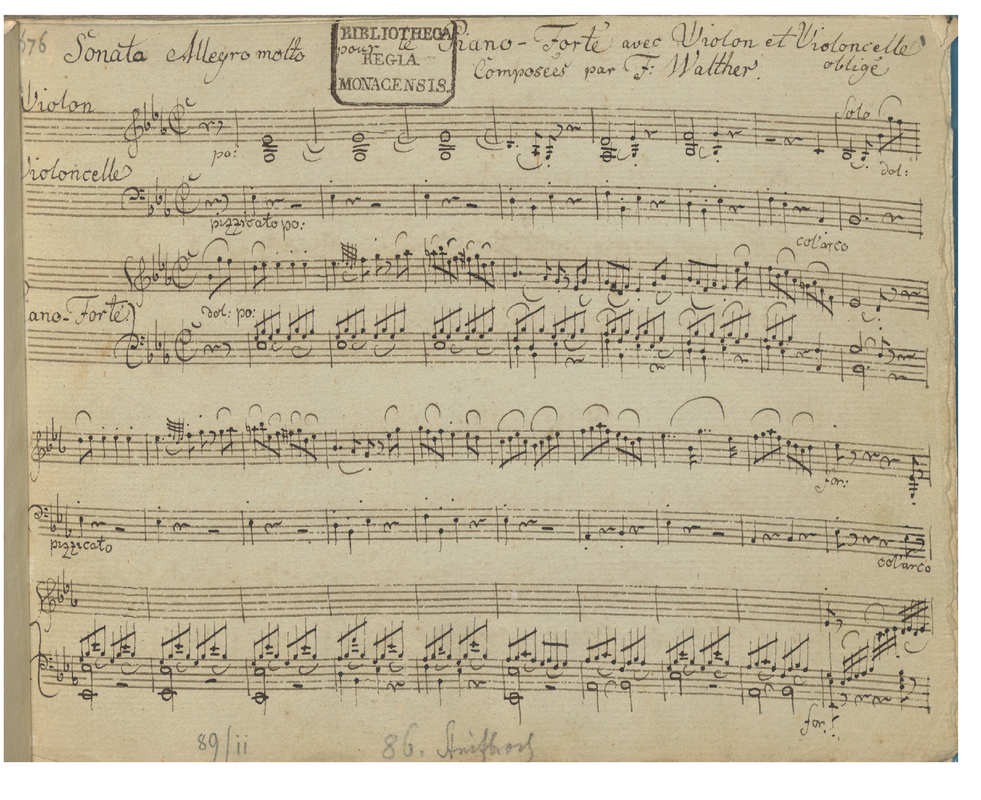 676
Sonata Allegro molto pour le Piano-Forte avec Violon et Violoncelle
obligé
Composées par F: Walther.
BIBLIOTHECA
REGIA
MONACENSIS.
Violon
Solo
po:
dol:
Violoncelle
pizzicato po:
col'arco
ano-Forte
dol: po:
for:
pizzicato
col'arco
for:
89/ii
86.